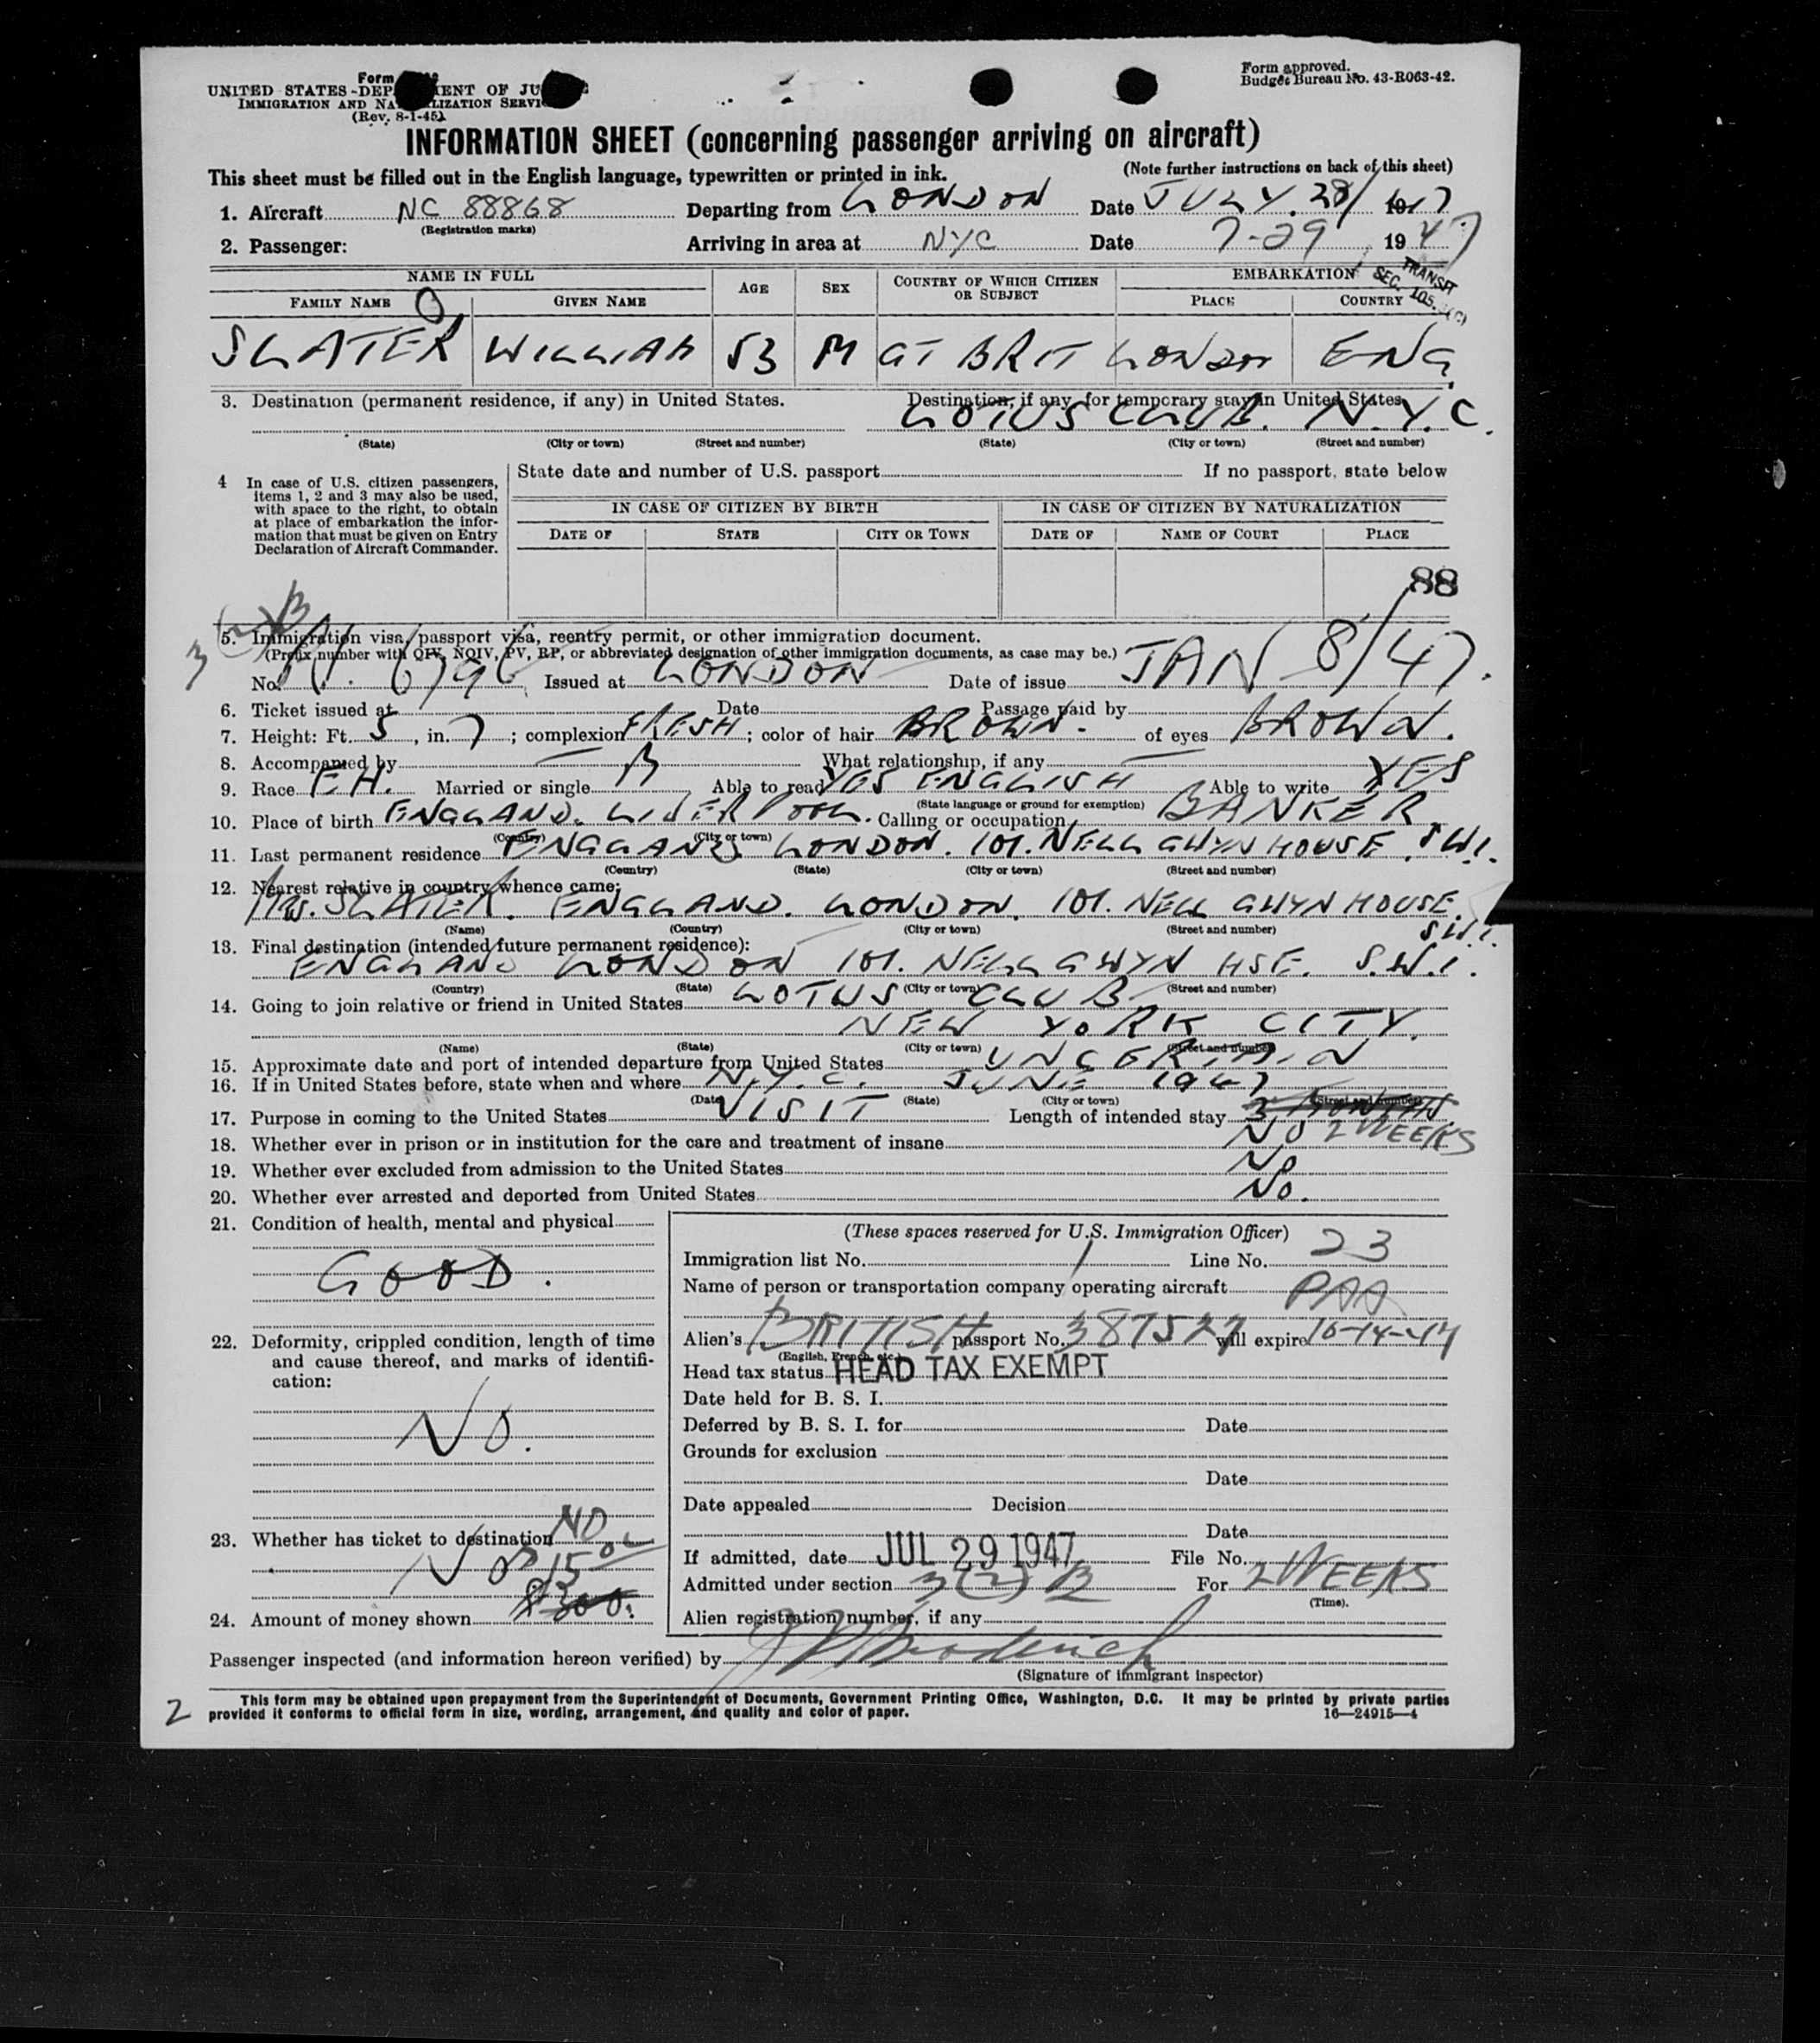 Form approved.
Budget Bureau No. 43-R063-42.
Form
UNITED STATES DEPARTMENT OF JUSTICE
IMMIGRATION AND NATURALIZATION SERVICE
(Rev. 8-1-45)
INFORMATION SHEET (concerning passenger arriving on aircraft)
This sheet must be filled out in the English language, typewritten or printed in ink. (Note further instructions on back of this sheet)
1. Aircraft NC 88868 Departing from LONDON Date JULY. 28/ 1947
(Registration marks)
2. Passenger: Arriving in area at NYC Date 7-29 1947
TRANSIT
SEC. 105.
NAME IN FULL AGE SEX COUNTRY OF WHICH CITIZEN OR SUBJECT EMBARKATION
FAMILY NAME GIVEN NAME PLACE COUNTRY
SLATER WILLIAM 53 M GT BRIT LONDON ENG.
3. Destination (permanent residence, if any) in United States. Destination, if any, for temporary stay in United States
LOTUS CLUB. N.Y.C.
(State) (City or town) (Street and number) (State) (City or town) (Street and number)
4 In case of U.S. citizen passengers, items 1, 2 and 3 may also be used, with space to the right, to obtain at place of embarkation the information that must be given on Entry Declaration of Aircraft Commander.
State date and number of U.S. passport If no passport, state below
IN CASE OF CITIZEN BY BIRTH IN CASE OF CITIZEN BY NATURALIZATION
DATE OF STATE CITY OR TOWN DATE OF NAME OF COURT PLACE
88
3(2)B
5. Immigration visa, passport visa, reentry permit, or other immigration document.
(Prefix number with QIV, NQIV, PV, RP, or abbreviated designation of other immigration documents, as case may be.)
No. Issued at LONDON Date of issue JAN 8/47.
6. Ticket issued at Date Passage paid by
7. Height: Ft. 5, in. 7; complexion FRESH; color of hair BROWN. of eyes BROWN.
8. Accompanied by What relationship, if any
9. Race EH. Married or single M Able to read YES ENGLISH Able to write YES
(State language or ground for exemption)
10. Place of birth ENGLAND. LIVERPOOL. Calling or occupation BANKER
(Country) (City or town)
11. Last permanent residence ENGLAND LONDON. 101. NELL GWYN HOUSE. S.W.1.
(Country) (State) (City or town) (Street and number)
12. Nearest relative in country whence came:
MRS. SLATER. ENGLAND. LONDON. 101. NELL GWYN HOUSE. S.W.1.
(Name) (Country) (City or town) (Street and number)
13. Final destination (intended future permanent residence):
ENGLAND LONDON 101. NELL GWYN HSE. S.W.1.
(Country) (State) (City or town) (Street and number)
14. Going to join relative or friend in United States LOTUS CLUB
NEW YORK CITY.
(Name) (State) (City or town) (Street and number)
15. Approximate date and port of intended departure from United States UNCERTAIN
16. If in United States before, state when and where N.Y.C. JUNE 1947
(Date) (State) (City or town) (Street and number)
17. Purpose in coming to the United States VISIT Length of intended stay 3 MONTHS 2 WEEKS
18. Whether ever in prison or in institution for the care and treatment of insane NO
19. Whether ever excluded from admission to the United States NO
20. Whether ever arrested and deported from United States NO.
21. Condition of health, mental and physical
GOOD.
22. Deformity, crippled condition, length of time and cause thereof, and marks of identification:
NO.
23. Whether has ticket to destination NO
NO
$15.00
24. Amount of money shown $300.
(These spaces reserved for U.S. Immigration Officer)
Immigration list No. 1 Line No. 23
Name of person or transportation company operating aircraft PAA
Alien's BRITISH passport No. 387527 will expire 10-14-47
(English, French, etc.)
Head tax status HEAD TAX EXEMPT
Date held for B. S. I.
Deferred by B. S. I. for Date
Grounds for exclusion
Date
Date appealed Decision
Date
If admitted, date JUL 29 1947 File No.
Admitted under section 3(2)B For 2 WEEKS
(Time).
Alien registration number, if any
Passenger inspected (and information hereon verified) by
(Signature of immigrant inspector)
2
This form may be obtained upon prepayment from the Superintendent of Documents, Government Printing Office, Washington, D.C. It may be printed by private parties
provided it conforms to official form in size, wording, arrangement, and quality and color of paper. 16—24915—4